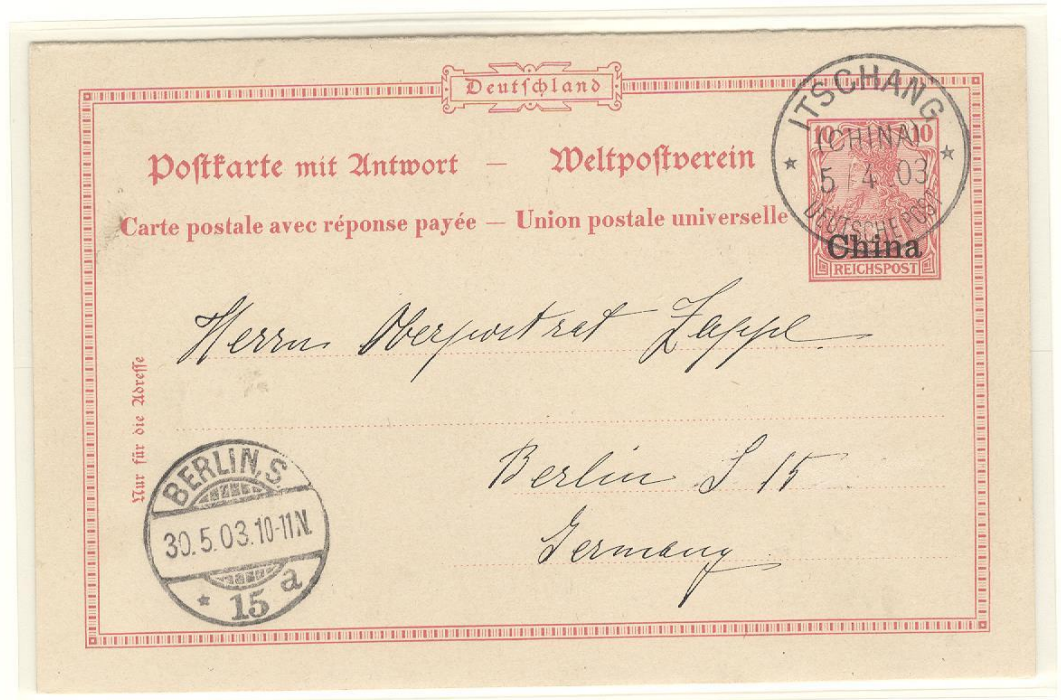 Deutschland
Postkarte mit Antwort — Weltpostverein
Carte postale avec réponse payée — Union postale universelle
ITSCHANG
(CHINA)
5 4 03
DEUTSCHE POST
10 10
China
REICHSPOST
Herrn Oberpostrat Zappe
Nur für die Adresse
Berlin S 15
Germany
BERLIN, S.
30.5.03.10-11N.
* 15 a